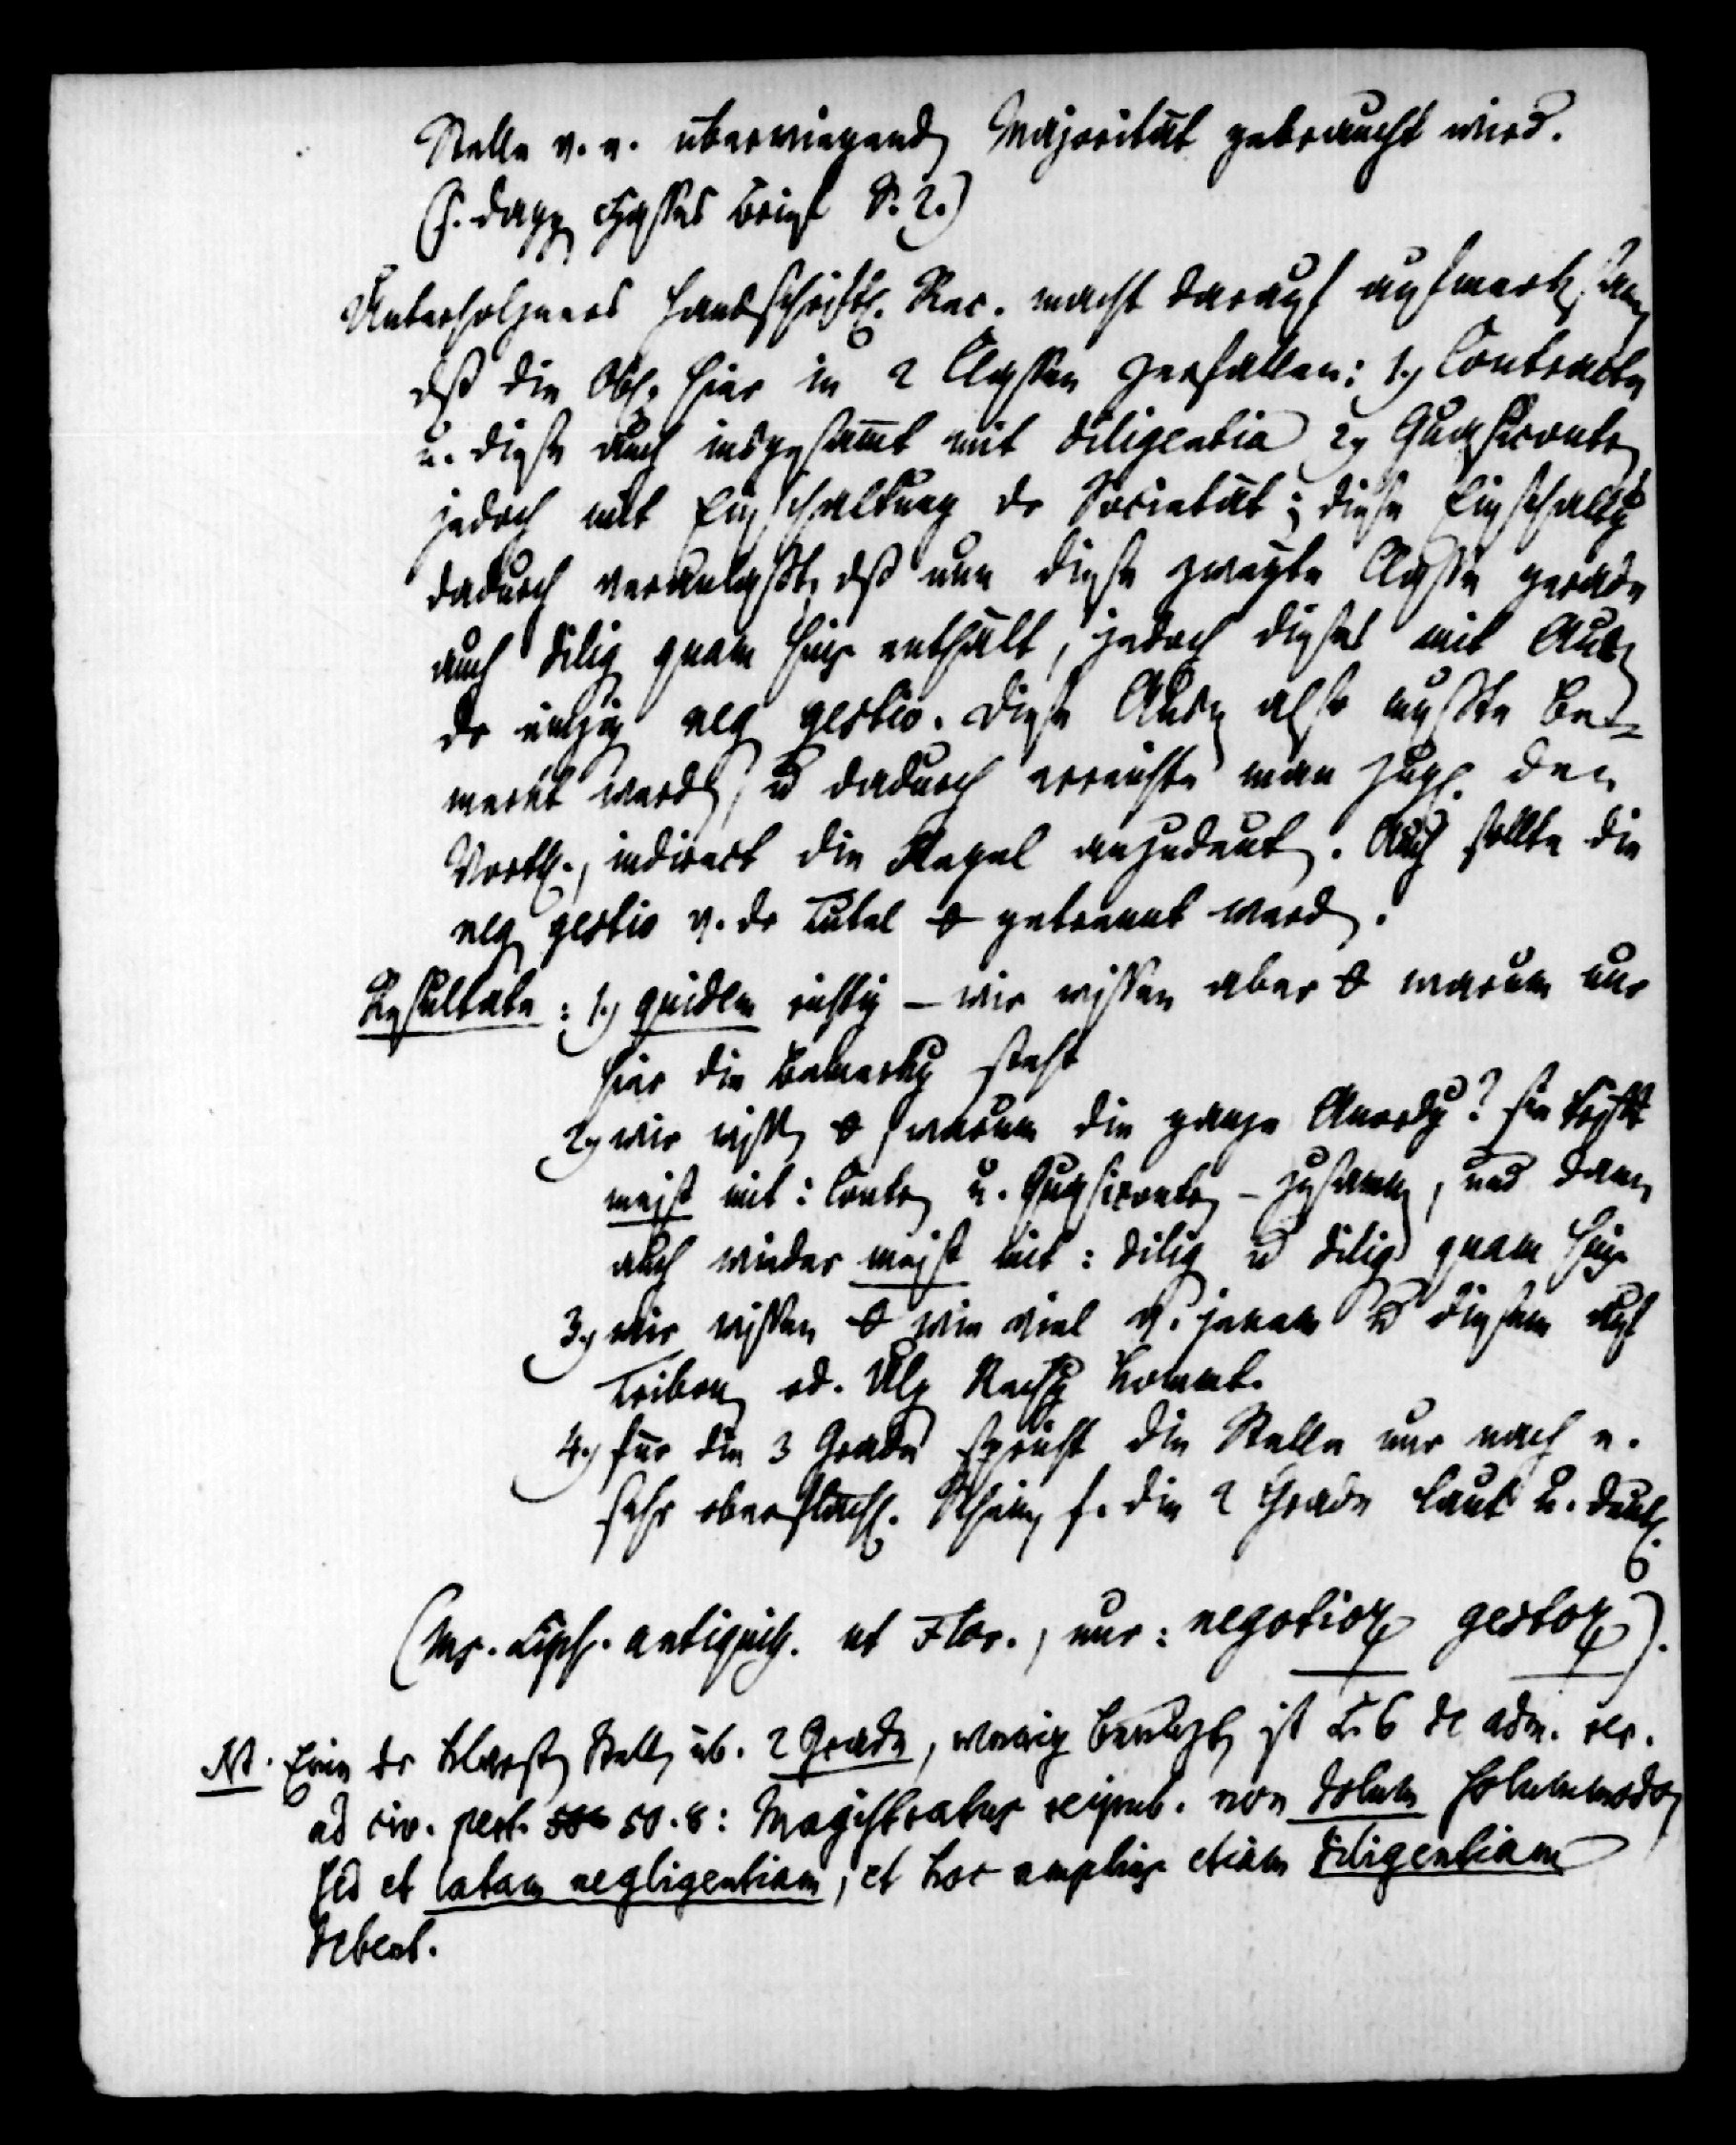 Stelle v. e. überwiegend Majorität gebraucht wird.
(s. dagg Hasses Brief S. 2.)
Unterholzners handschriftl. Rec. macht darauf aufmerksam
dß die Obl. hier in 2 Classen zerfallen: 1.) Contracte
u. diese auch insgesamt mit diligentia 2.) Quasicontr
jedoch mit Einschaltung dr Societät; diese Einschaltg
dadurch veranlaßt, dß nun diese zweyte Classe gerade
auch dilig quam suis enthält, jedoch dieses mit Ausn
dr einzig neg gestio. Diese Ausn also mußte be=
merkt werd, u dadurch erreichte man zugl. den
Vorth., indirect die Regel anzudeut. Auch sollte die
neg gestio v. dr Tutel θ getrennt werd.
Resultate: 1.) quidem richtig – wir wissen aber θ warum nur
hier die Bemerkg steht
2.) wir wiss θ warum die ganze Anordg? sie trifft
meist mit: Contr u. Quasicontr – zusamm, und dann
auch wieder meist mit: dilig u dilig quam suis
3.) wir wissen θ wie viel v. jenem u diesem auf
Tribon od. Ulp Rechg kommt.
4.) für die 3 Grade spricht die Stelle nur nach e.
sehr oberflächl. Schein, f. die 2 Grade laut u. deutl.
(Ms. Lips. antiquiss. ut Flor., nur: negotioꝝ gestoꝝ).
Nt. Eine dr klarst Stell üb. 2 Grade, wenig benutzt, ist L. 6 de adm. rer.
ad civ. pert. 50. 8: Magistratus reipub. non dolum solummodo,
sed et latam negligentiam, et hoc amplius etiam diligentiam
debent.